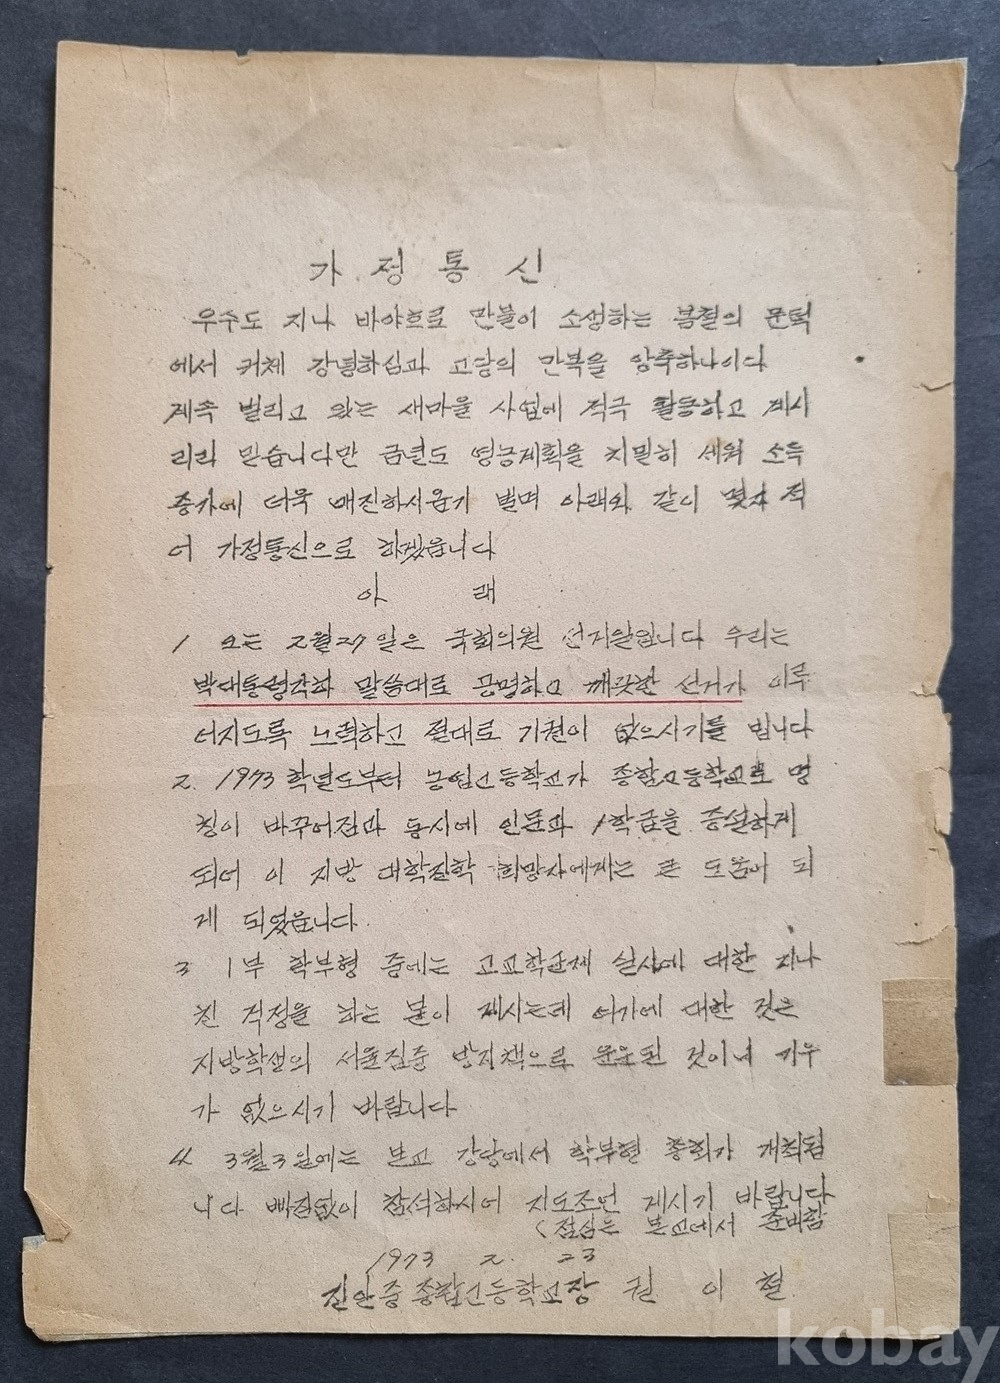 가 정 통 신
우수도 지나 바야흐로 만물이 소생하는 봄철의 문턱
에서 귀체 강녕하심과 고당의 만복을 앙축하나이다
계속 벌리고 있는 새마을 사업에 적극 활동하고 계시
리라 믿습니다만 금년도 영농계획을 치밀히 세워 소득
증가에 더욱 매진하시옵기 빌며 아래와 같이 몇자 적
어 가정통신으로 하겠읍니다
아 래
1 오는 2월27일은 국회의원 선거일입니다 우리는
박대통령각하 말씀대로 공명하고 깨끗한 선거가 이루
어지도록 노력하고 절대로 기권이 없으시기를 빕니다
2. 1973학년도부터 농업고등학교가 종합고등학교로 명
칭이 바꾸어짐과 동시에 인문과 1학급을 증설하게
되어 이 지방 대학진학 희망자에게는 큰 도움이 되
게 되었읍니다.
3 1부 학부형 중에는 고교학군제 실시에 대한 지나
친 걱정을 하는 분이 계시는데 여기에 대한 것은
지방학생의 서울집중 방지책으로 운운된 것이니 기우
가 없으시기 바랍니다
4 3월3일에는 본교 강당에서 학부형 총회가 개최됩
니다 빠짐없이 참석하시어 지도조언 계시기 바랍니다
(점심은 본교에서 준비함
1973 2. 23
진안중종합고등학교장 권 이 철
kobay